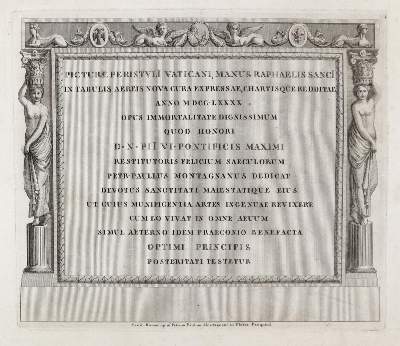 PICTURÆ PERISTYLI VATICANI, MANUS RAPHAELIS SANCI
IN TABULIS AEREIS NOVA CURA EXPRESSAE, CHARTISQUE REDDITAE
ANNO M·DCC·LXXXX
OPUS IMMORTALITATE DIGNISSIMUM
QUOD HONORI
D·N·PII VI·PONTIFICIS MAXIMI
RESTITUTORIS FELICIUM SAECULORUM
PETR·PAULLUS MONTAGNANUS DEDICAT
DEVOTUS SANCTITATI MAIESTATIQUE EIUS
UT CUIUS MUNIFICENTIA ARTES INGENUAE REVIXERE
CUM EO VIVAT IN OMNE AEUUM
SIMUL AETERNO IDEM PRAECONIO BENEFACTA
OPTIMI PRINCIPIS
POSTERITATI TESTETUR